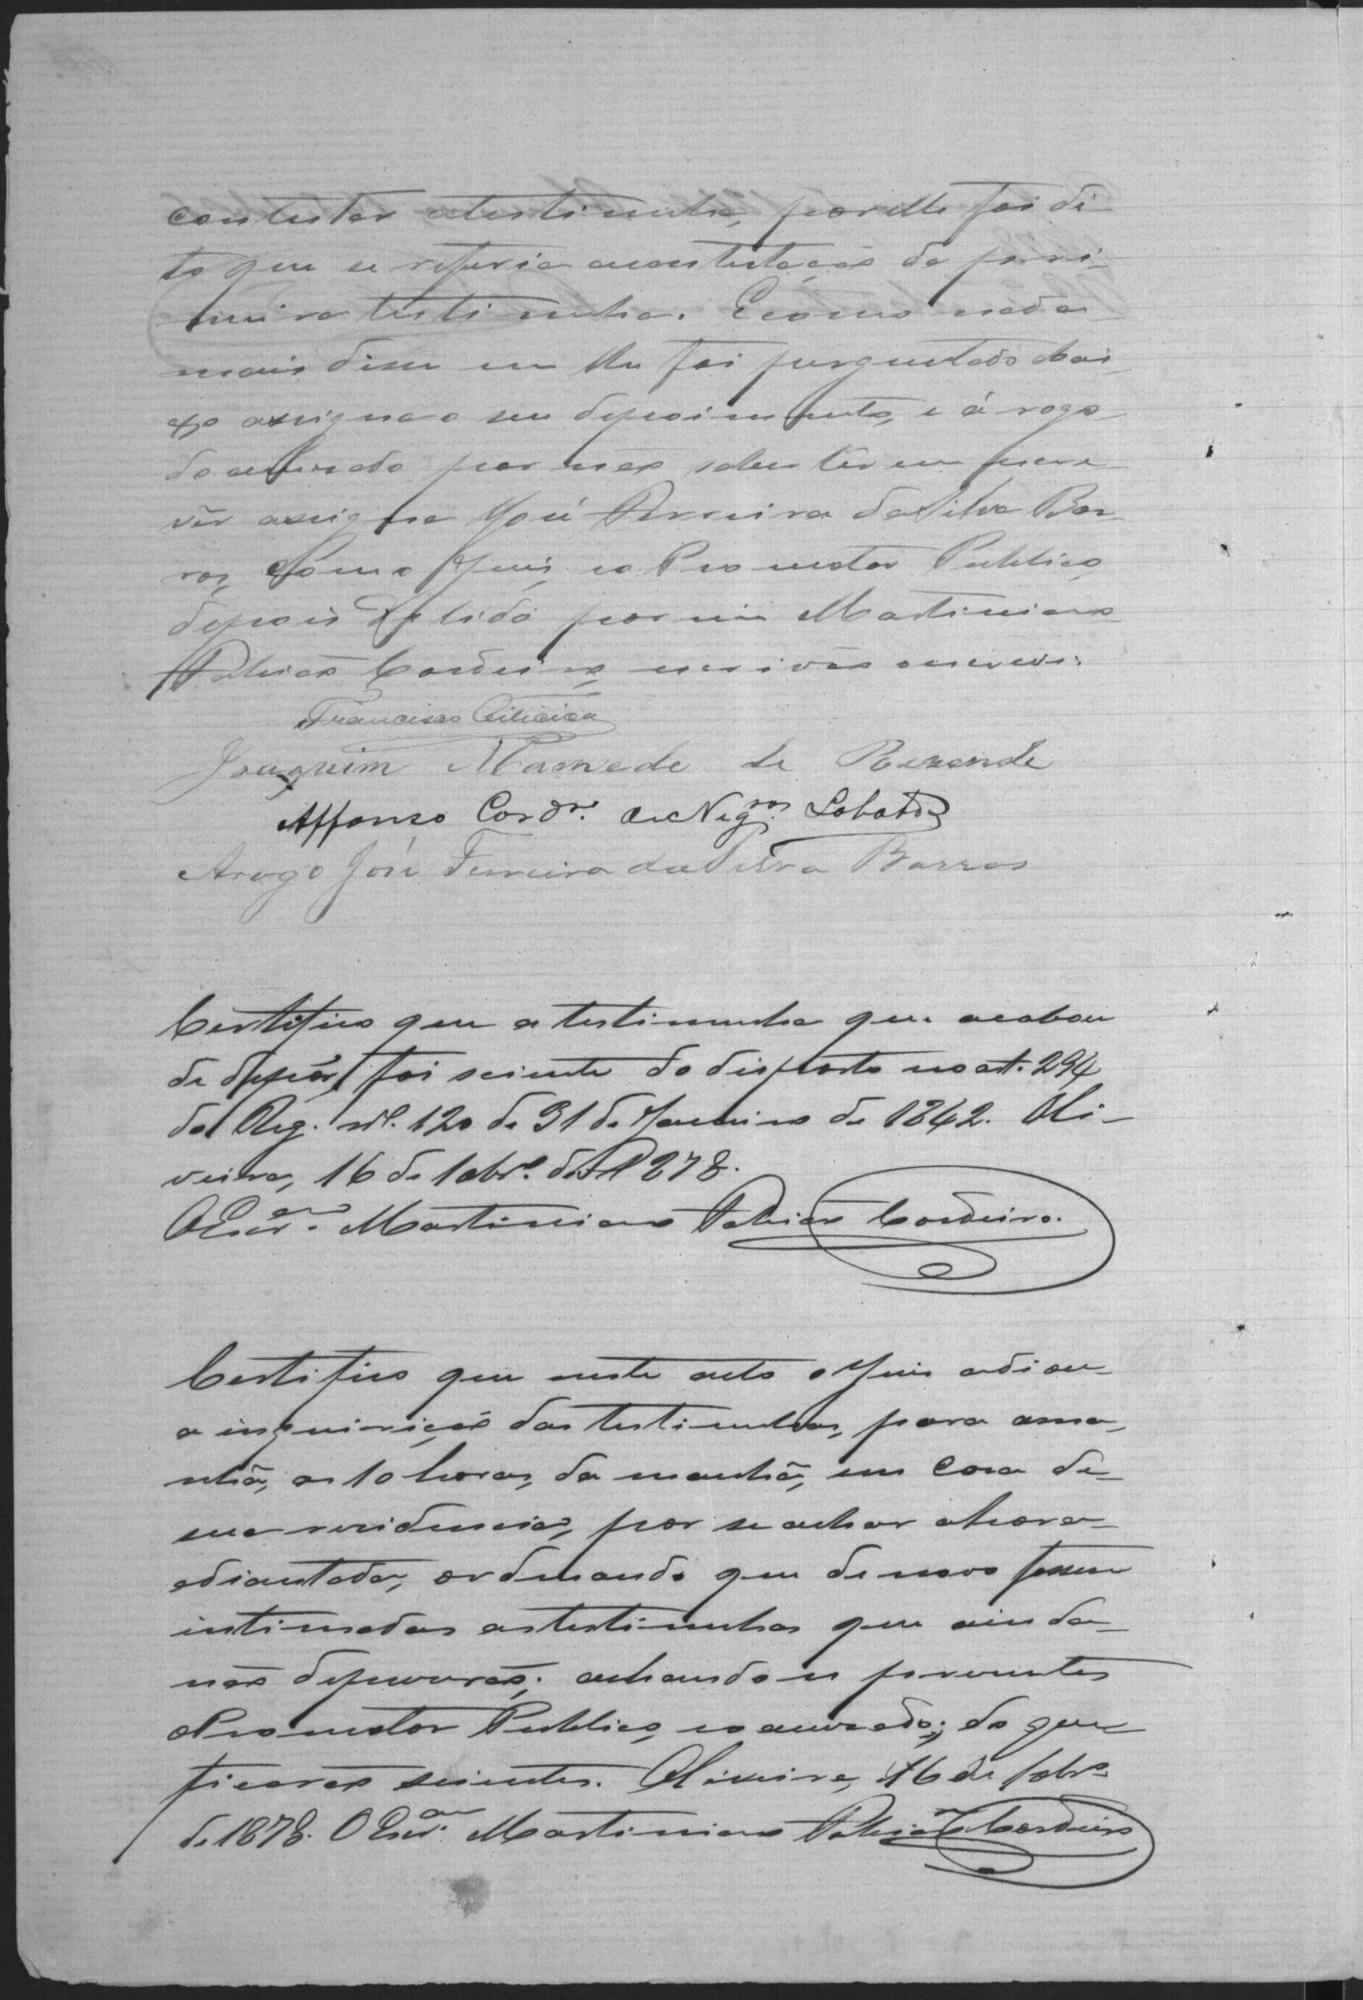 contestar atestimunha, por elle foi di
to que se referia acontestação da pri-
meira testimunha. Ecomo nada
mais disse nem lhe foi perguntado abai-
xo assigna o seu depoimento, e á rogo
do accusado por não saber ler nem escre
vêr assigna José Ferreira daSilva Bar-
ros, Com o Juis, eo Promotor Publico,
depois de lido por mim Martiniano
Cordeiro, escrivão oescrevi.
Francisco
Joaquim Mamede de Rezende
Affonso Cordro. de Negros. Lobato
Arogo José Ferreira da Silva Barros
Certifico que a testimunha que acabou
de depôr, foi sciente do disposto no art. 294
do Reg. nº. 120 de 31 de Janeiro de 1842. Oli-
veira, 16 de 1878.
OEscram. Martiniano Cordeiro.
Certifico que neste acto o Juis adiou
a inquirição das testimunhas, para ama-
nhã, as 10 horas, da manhã, em casa de
sua residencia, por se achar ahora
adiantada, ordenando que denovo fossem
intimadas astestimunhas que ainda
não depuzerão; achando se presentes
oPromotor Publico, eo accusado; do que
ficarão scientes. Oliveira, 16 de
de 1878. O Escram. Martiniano Cordeiro